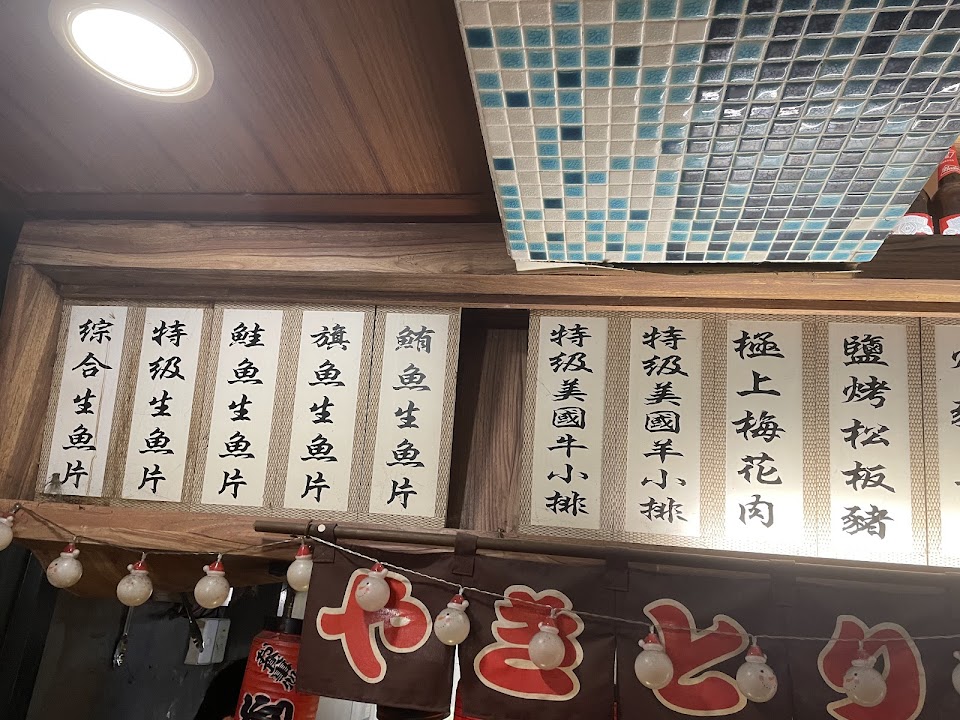 綜合生魚片
特級生魚片
鮭魚生魚片
旗魚生魚片
鮪魚生魚片
特級美國牛小排
特級美國羊小排
極上梅花肉
鹽烤松板豬
やきとり